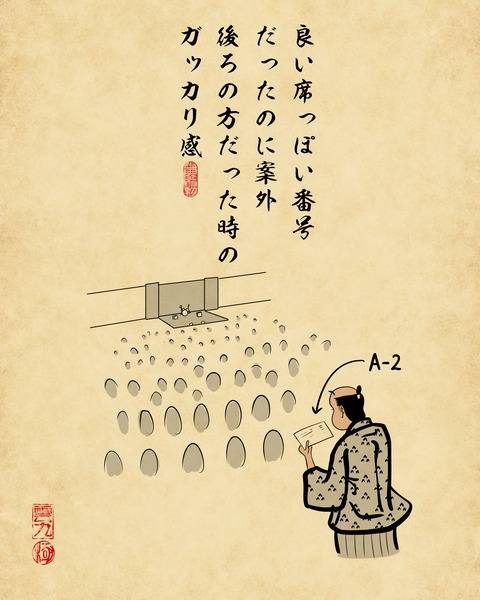 良い席っぽい番号
だったのに案外
後ろの方だった時の
ガッカリ感
A-2